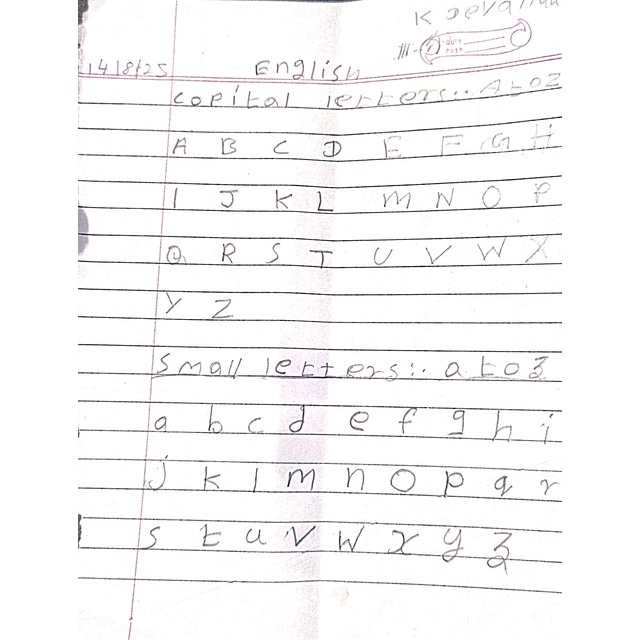 14/8/25 English
Capital letters:. A to Z
A B C D E F G H
I J K L M N O P
Q R S T U V W X
Y Z
Small letters:. a to z
a b c d e f g h i
j k l m n o p q r
s t u v w x y z